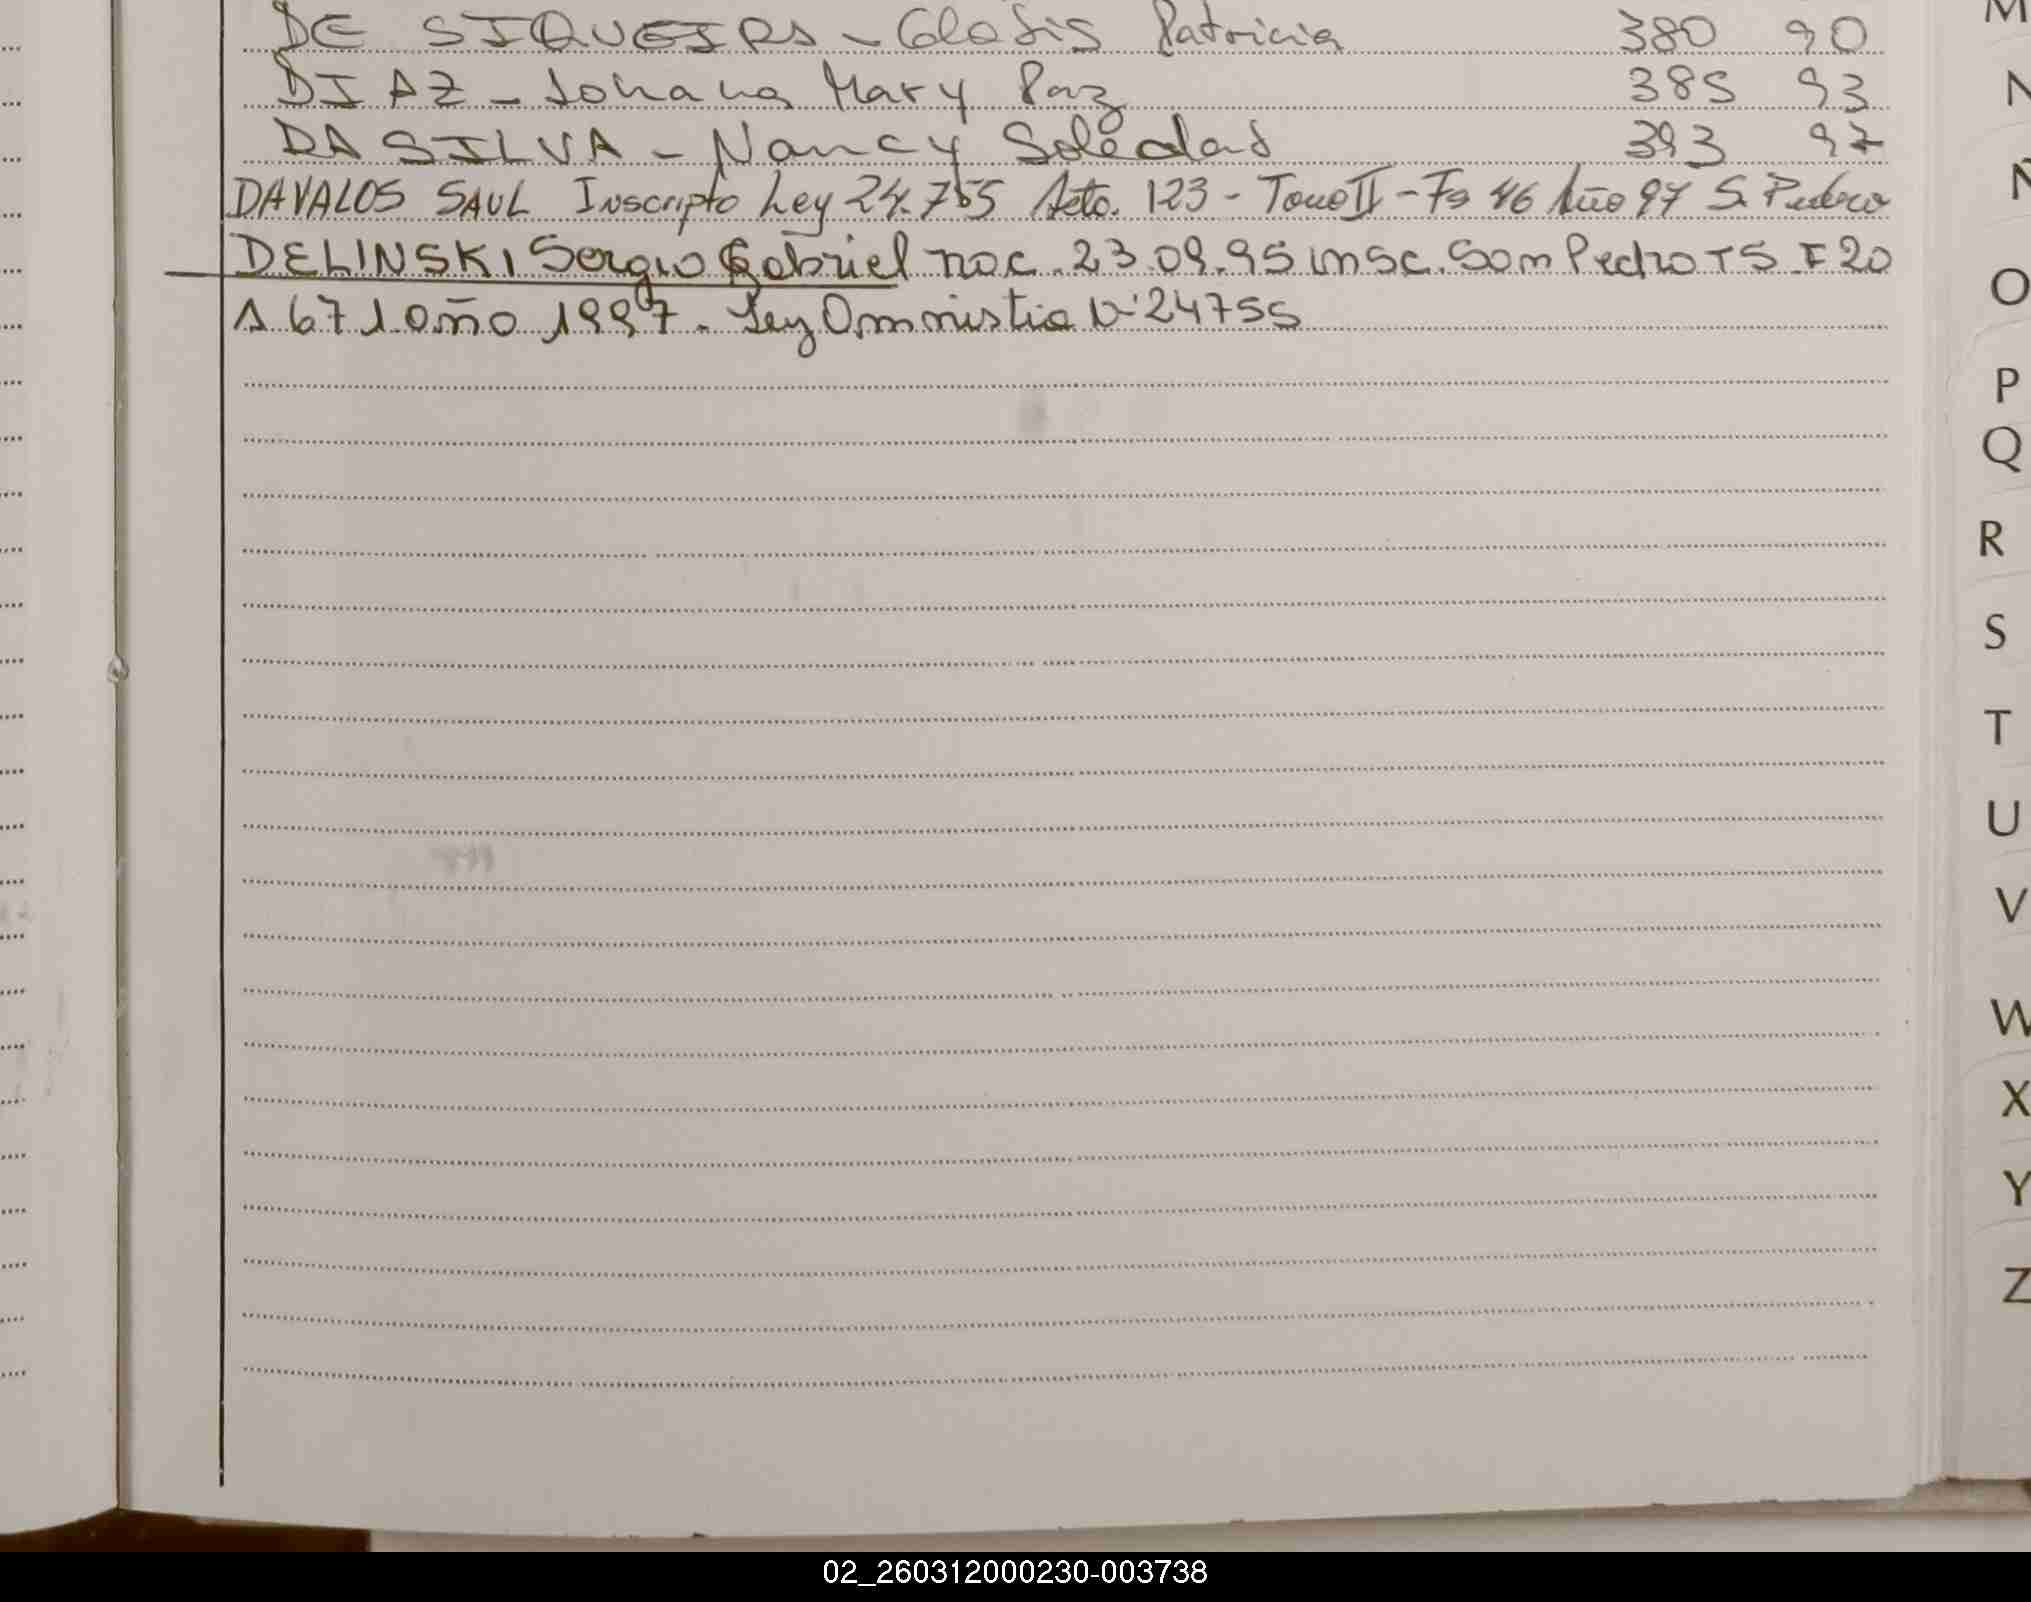 DE SIQUEIRA - Gladis Patricia 380 90
DIAZ - Johana Mary Paz 385 93
DA SILVA - Nancy Soledad 393 97
DAVALOS SAUL Inscripto Ley 24.755 Acta. 123 - Tomo II - Fº 46 Año 97 S. Pedro
DELINSKI Sergio Gabriel nac. 23.09.95 insc. San Pedro T5 F 20
A 671 año 1997. Ley Amnistia Nº 24755
M
N
Ñ
O
P
Q
R
S
T
U
V
W
X
Y
Z
02_260312000230-003738